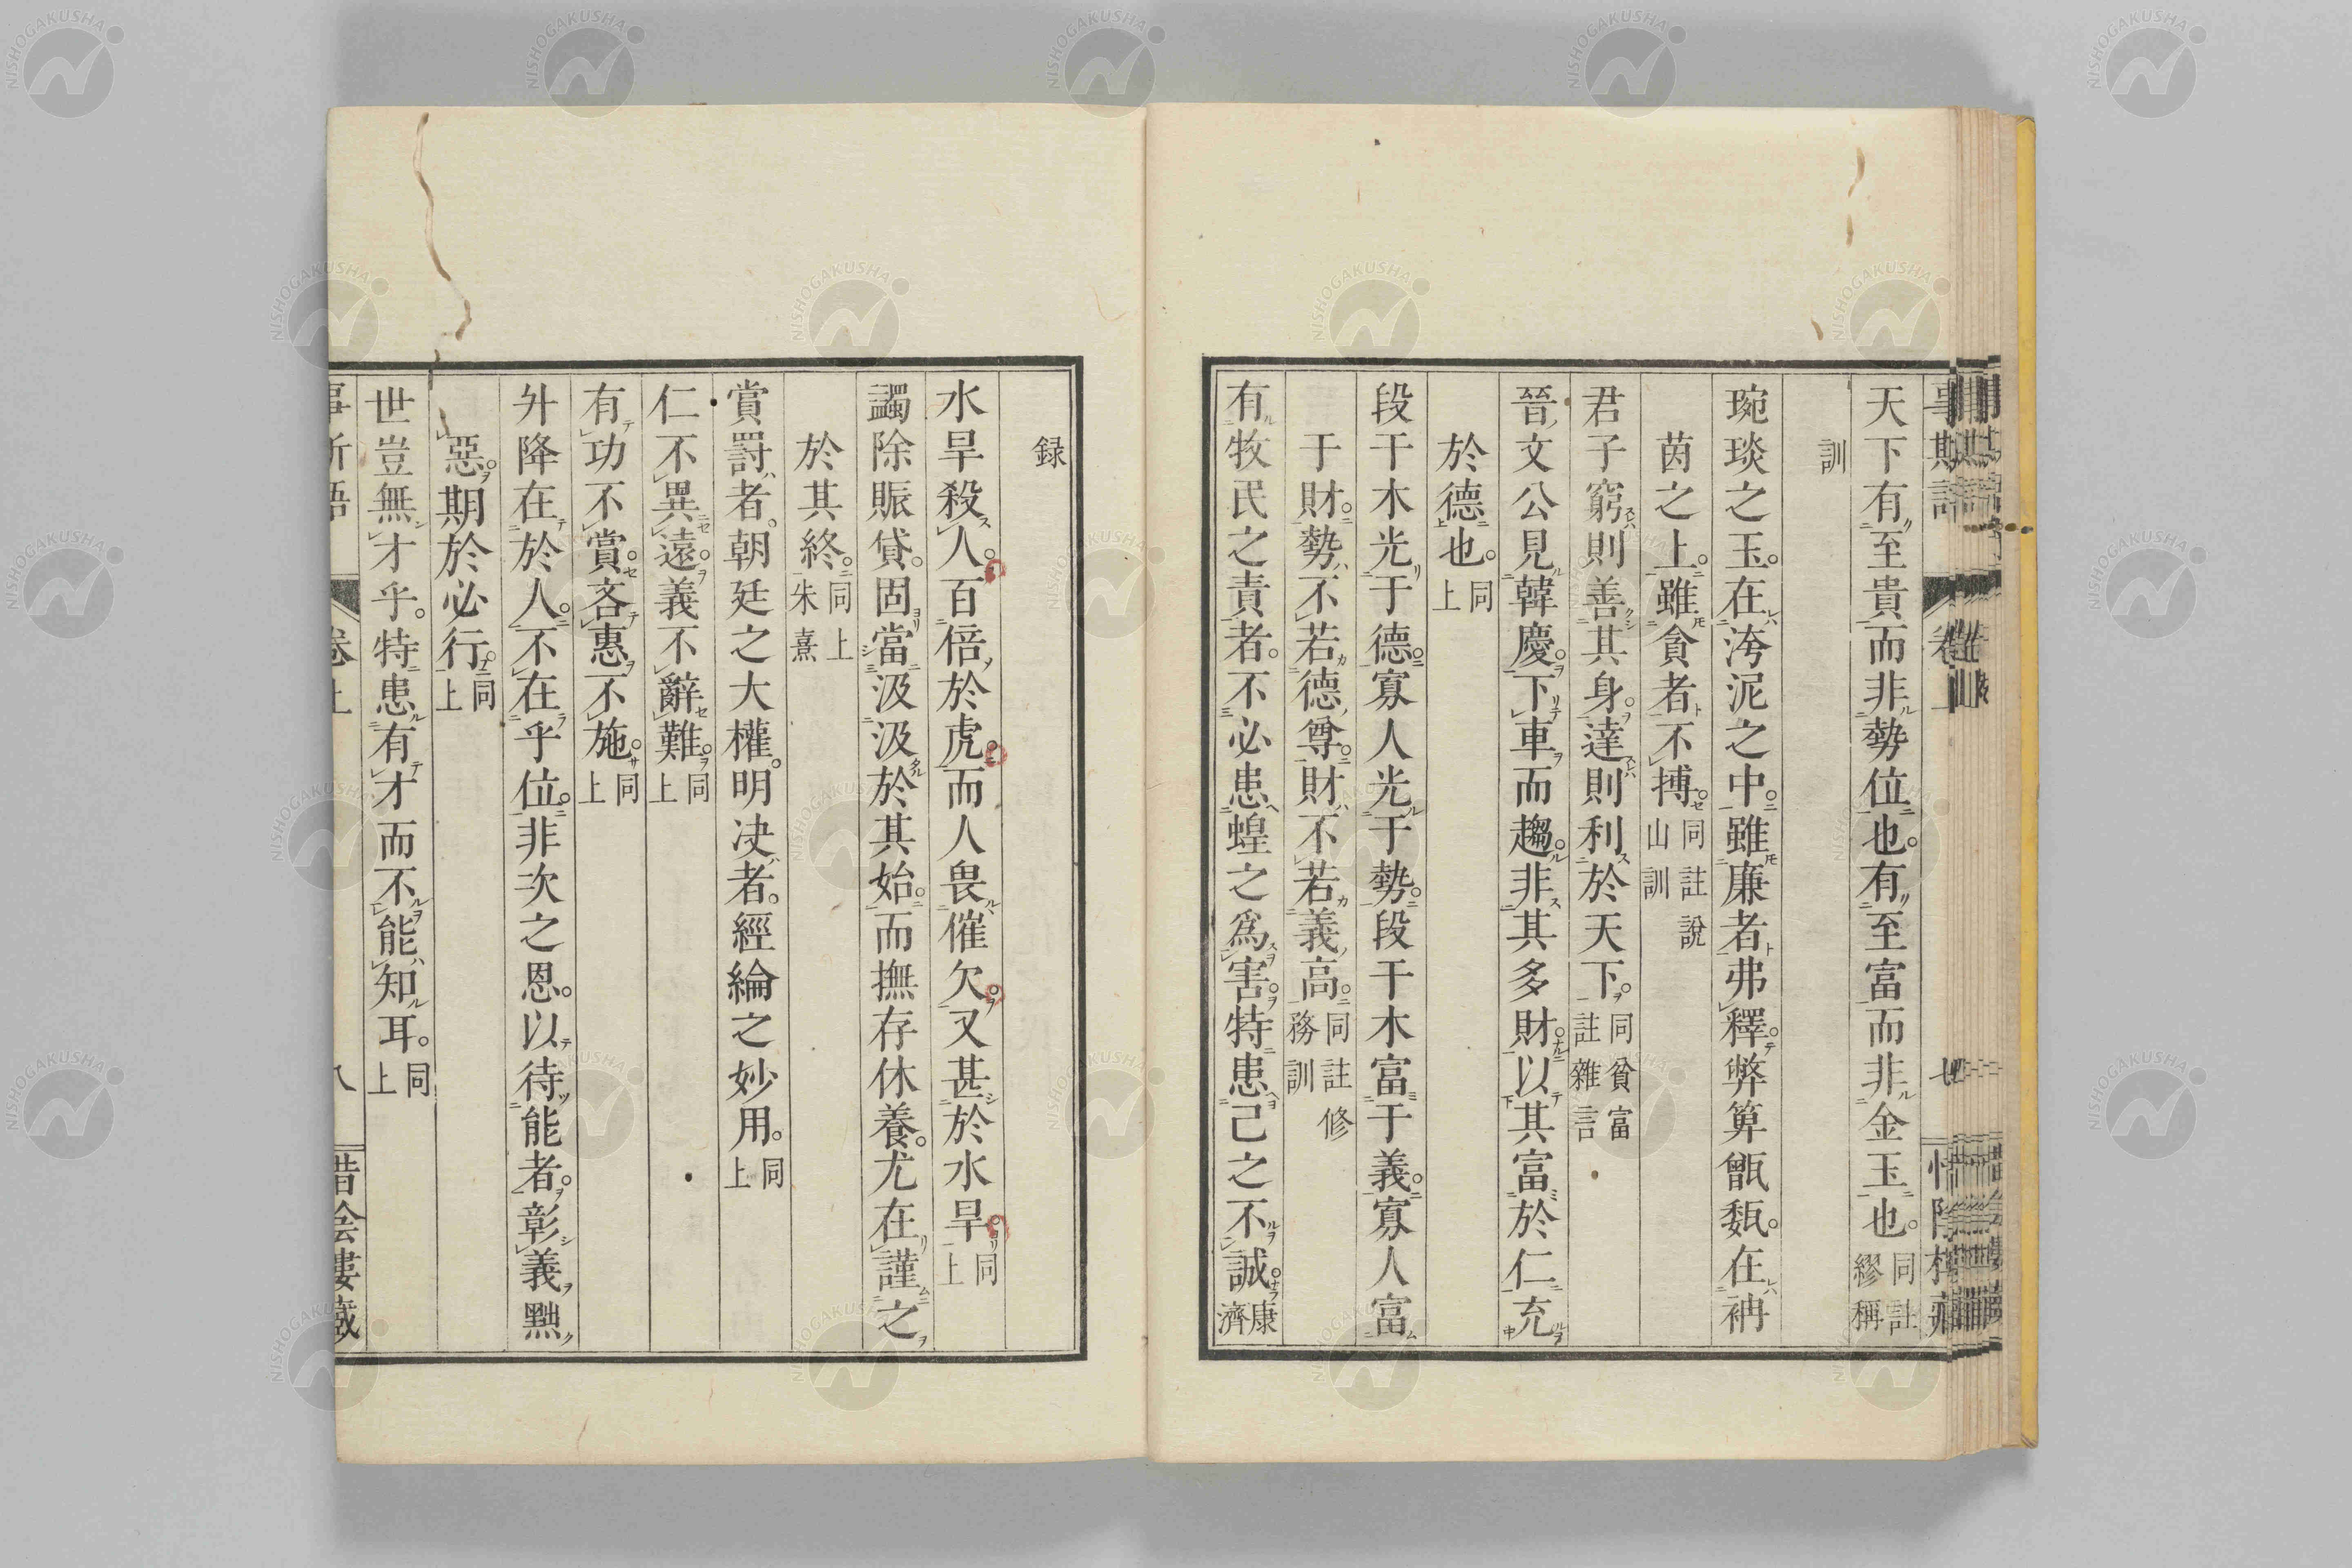 天下有至貴而非勢位也。有至富而非金玉也。同註繆稱
訓
琬琰之玉。在洿泥之中。雖廉者弗釋。弊箄甑瓾。在袡
茵之上。雖貪者不搏。同註說山訓
君子窮則善其身。達則利於天下。同貧富註雜言
晉文公見韓慶。下車而趨。非其多財。以其富於仁充
於德也。同上
段干木光于德。寡人光于勢。段干木富于義。寡人富
于財。勢不若德尊。財不若義高。同註修務訓
有牧民之責者。不必患蝗之爲害。特患己之不誠。康濟
録
水旱殺人。百倍於虎。而人畏催欠。又甚於水旱。同上
蠲除賑貸。固當汲汲於其始。而撫存休養。尤在謹之
於其終。同上朱熹
賞罰者。朝廷之大權。明決者。經綸之妙用。同上
仁不異遠。義不辭難。同上
有功不賞。吝惠不施。同上
外降在於人。不在乎位。非次之恩。以待能者。彰義黜
惡。期於必行。同上
世豈無才乎。特患有才而不能知耳。同上
NISHOGAKUSHA